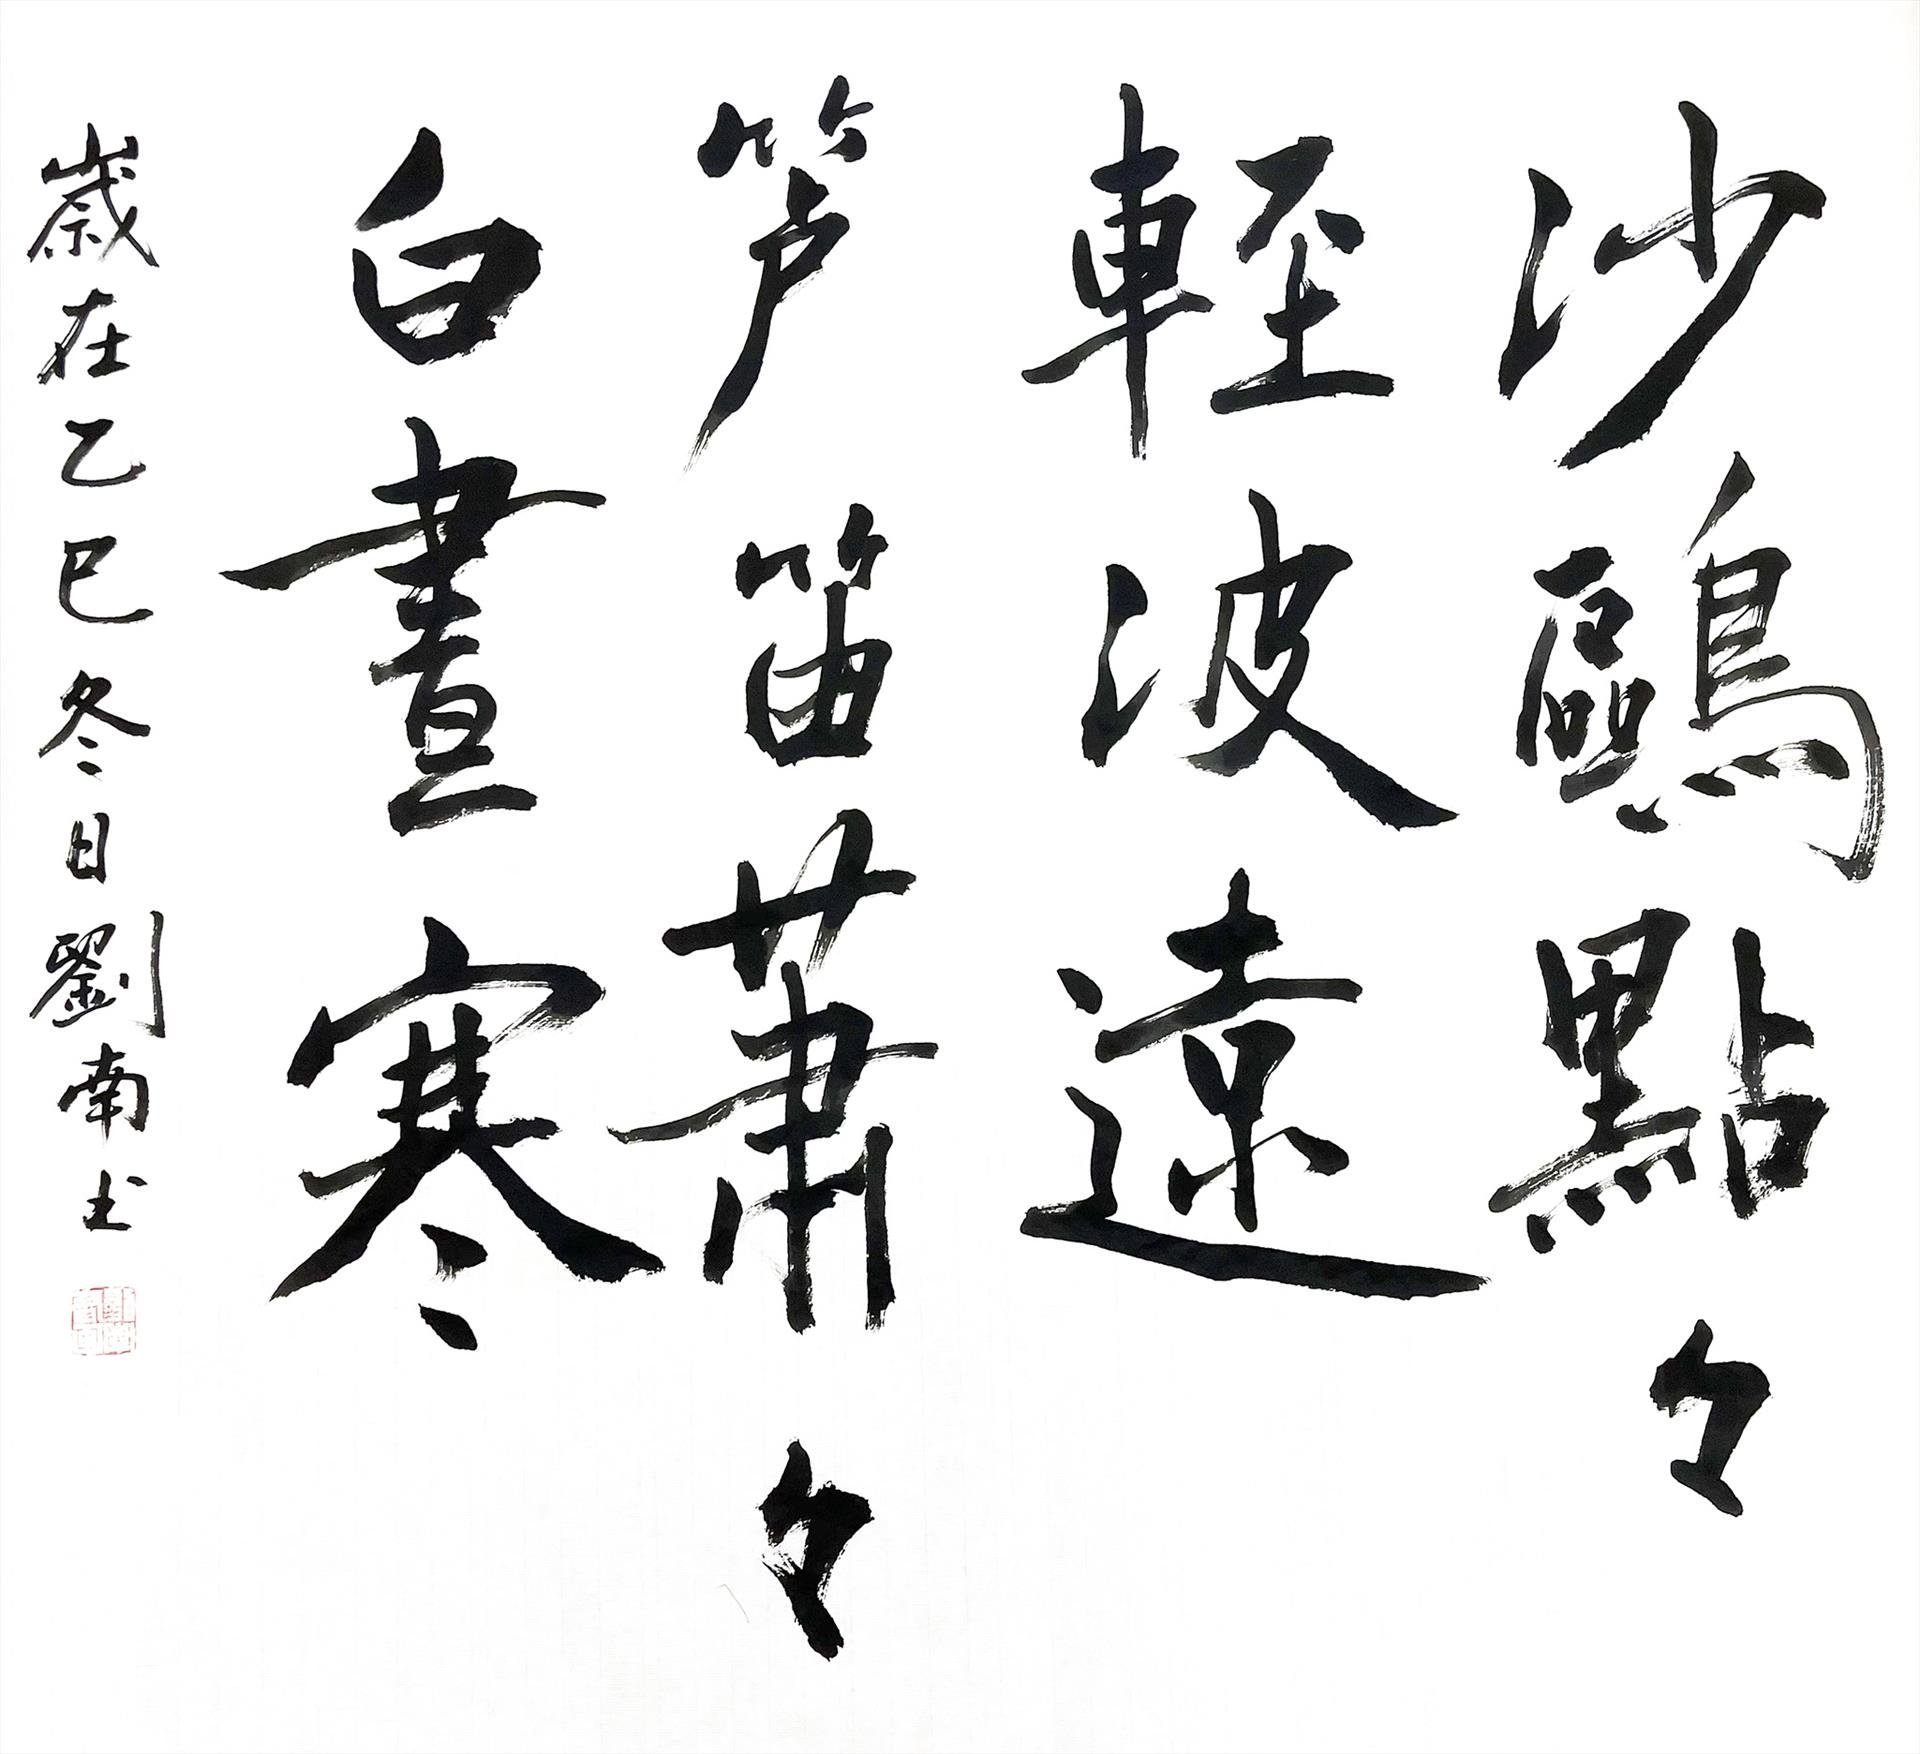 沙鷗點々
輕波遠
笋笛蕭々
白晝寒
歲在乙巳冬日劉南书